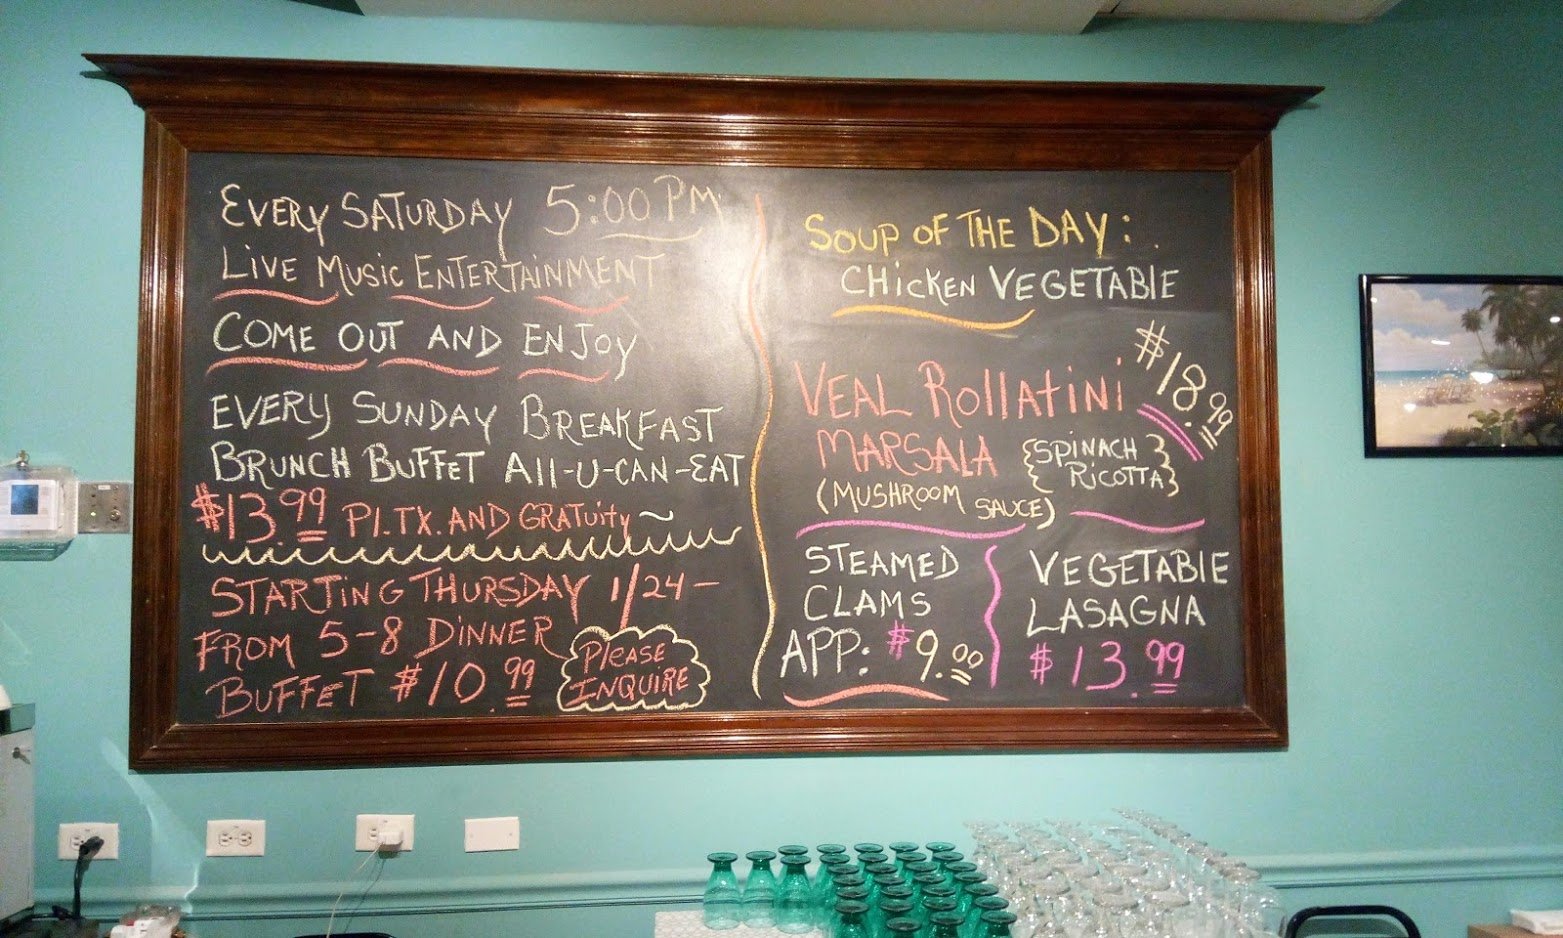 EVERY SATURDAY 5:00 PM
LIVE MUSIC ENTERTAINMENT
COME OUT AND ENJOY
EVERY SUNDAY BREAKFAST
BRUNCH BUFFET ALL-U-CAN-EAT
$13.99 Pl.TX.AND GRATuity~
STARTING THURSDAY 1/24-
FROM 5-8 DINNER
BUFFET $10.99
PLEASE
INQUIRE
SOUP OF THE DAY:
CHICKEN VEGETABLE
$18.99
VEAL ROLLATINI
MARSALA
(SPINACH
RICOTTA)
(MUSHROOM SAUCE)
STEAMED
CLAMS
APP: $9.00
VEGETABLE
LASAGNA
$13.99